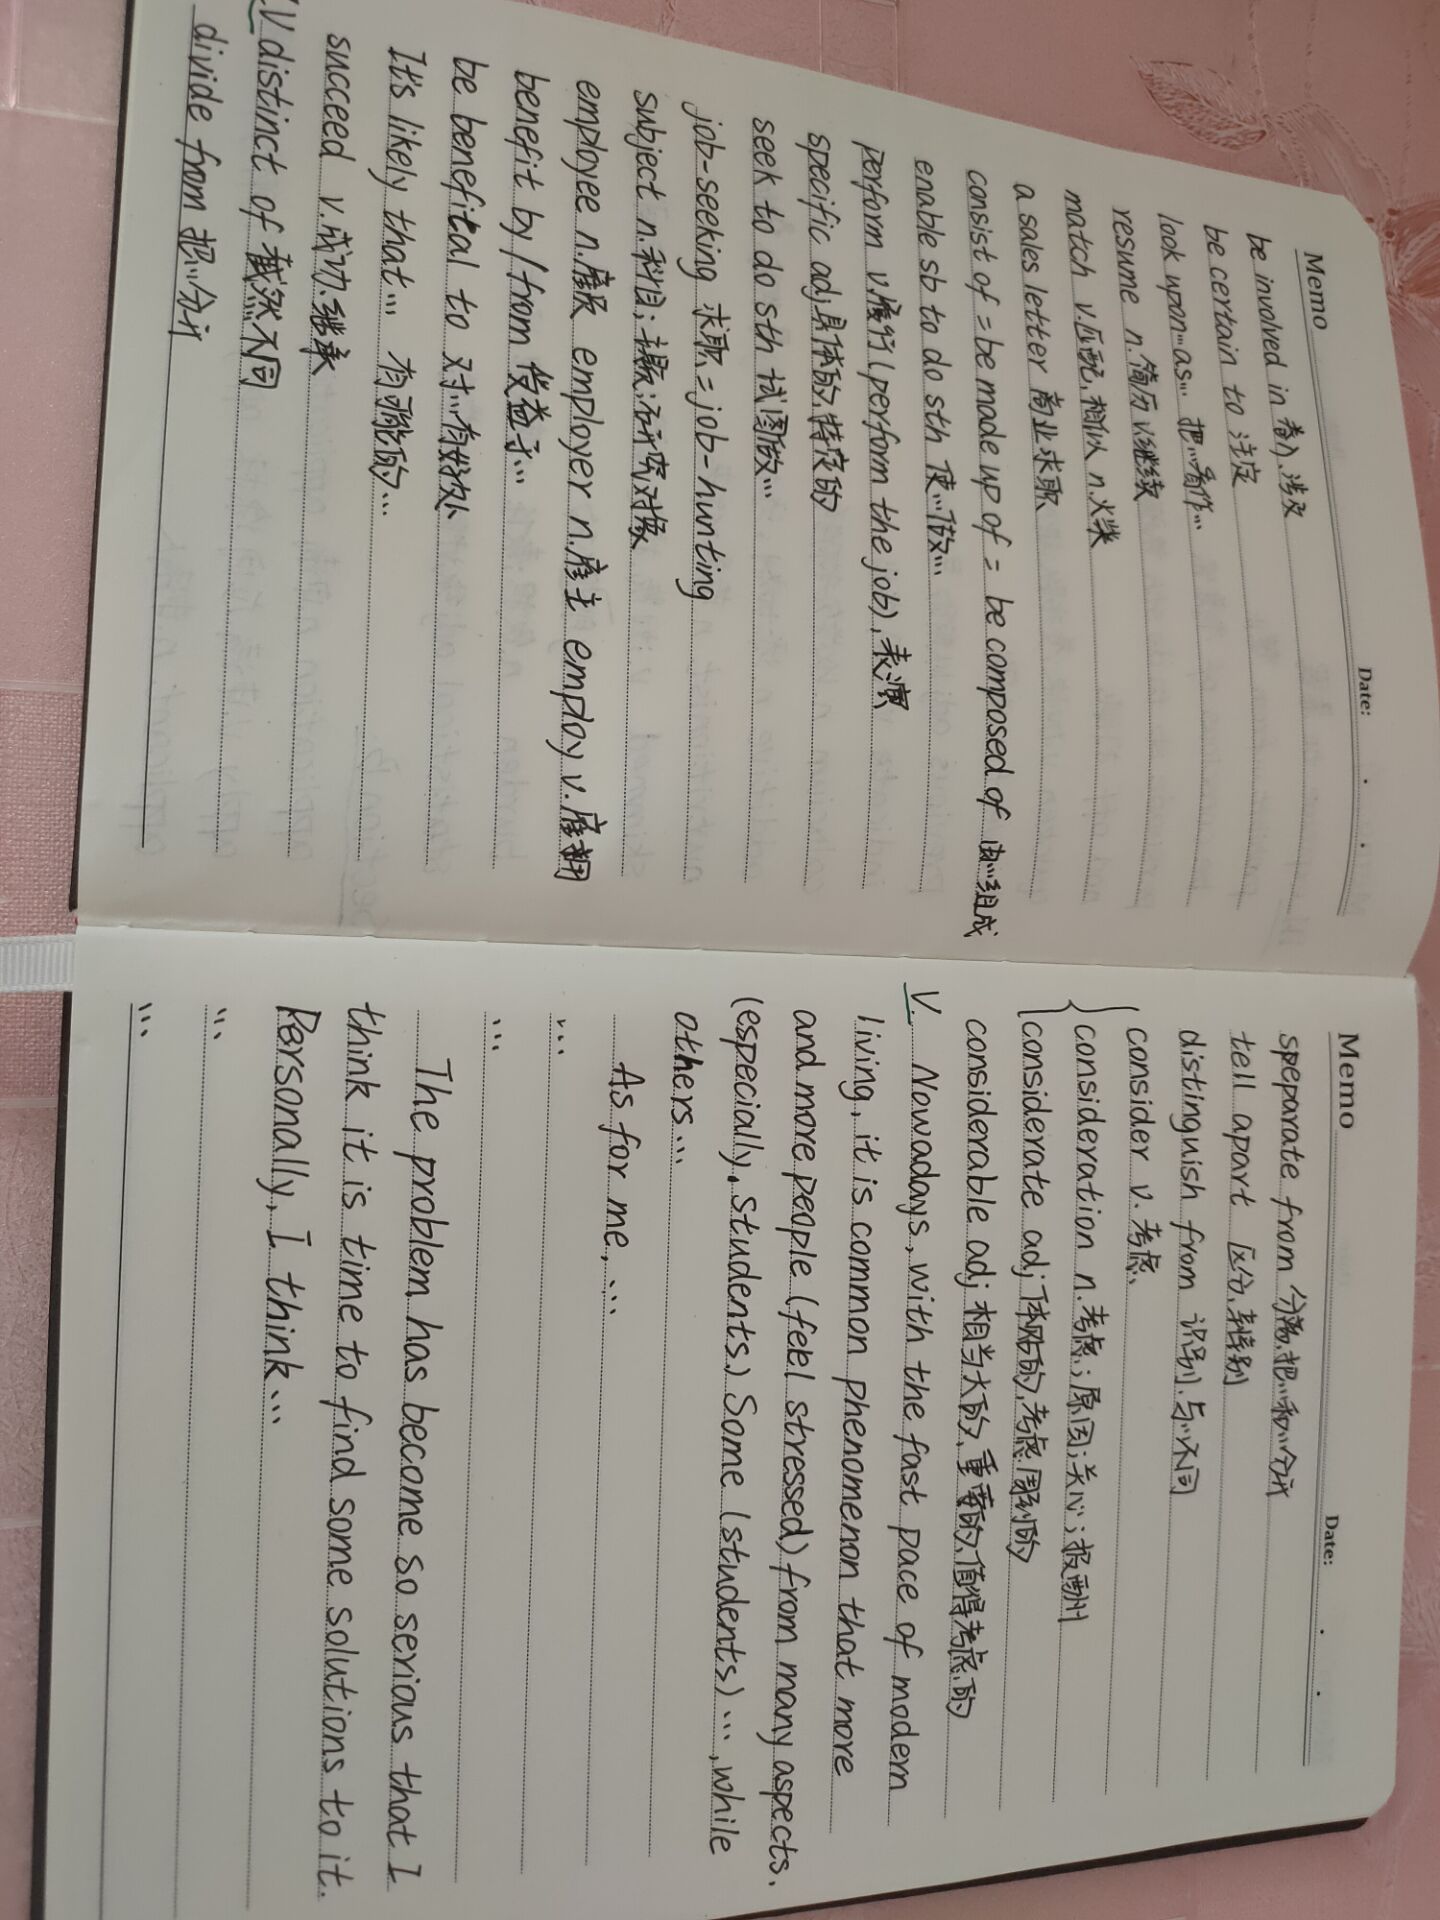 Memo
Date:
be involved in 卷入,涉及
be certain to 注定
look upon…as… 把…看作…
resume n.简历 v.继续
match v.匹配,相似 n.火柴
a sales letter 商业求职
consist of = be made up of = be composed of 由…组成
enable sb to do sth 使…做…
perform v.履行(perform the job),表演
specific adj.具体的,特定的
seek to do sth 试图做…
job-seeking 求职 = job-hunting
subject n.科目;主题;研究对象
employee n.雇员 employer n.雇主 employ v.雇用
benefit by/from 受益于…
be benefital to 对…有好处
It's likely that… 有可能的…
succeed v.成功.继承
IV distinct of 截然不同
divide from 把…分开
Memo
Date:
speparate from 分离,把…和…分开
tell apart 区分,辨别
distinguish from 识别.与…不同
consider v.考虑、
consideration n.考虑;原因;关心;报酬
considerate adj体贴的,考虑周到的
considerable adj相当大的,重要的,值得考虑的
V. Nowadays, with the fast pace of modern
living, it is common phenomenon that more
and more people (feel stressed) from many aspects.
(especially, students) Some (students) … , while
others …
As for me, …
…
…
The problem has become so serious that I
think it is time to find some solutions to it.
Personally, I think …
…
…